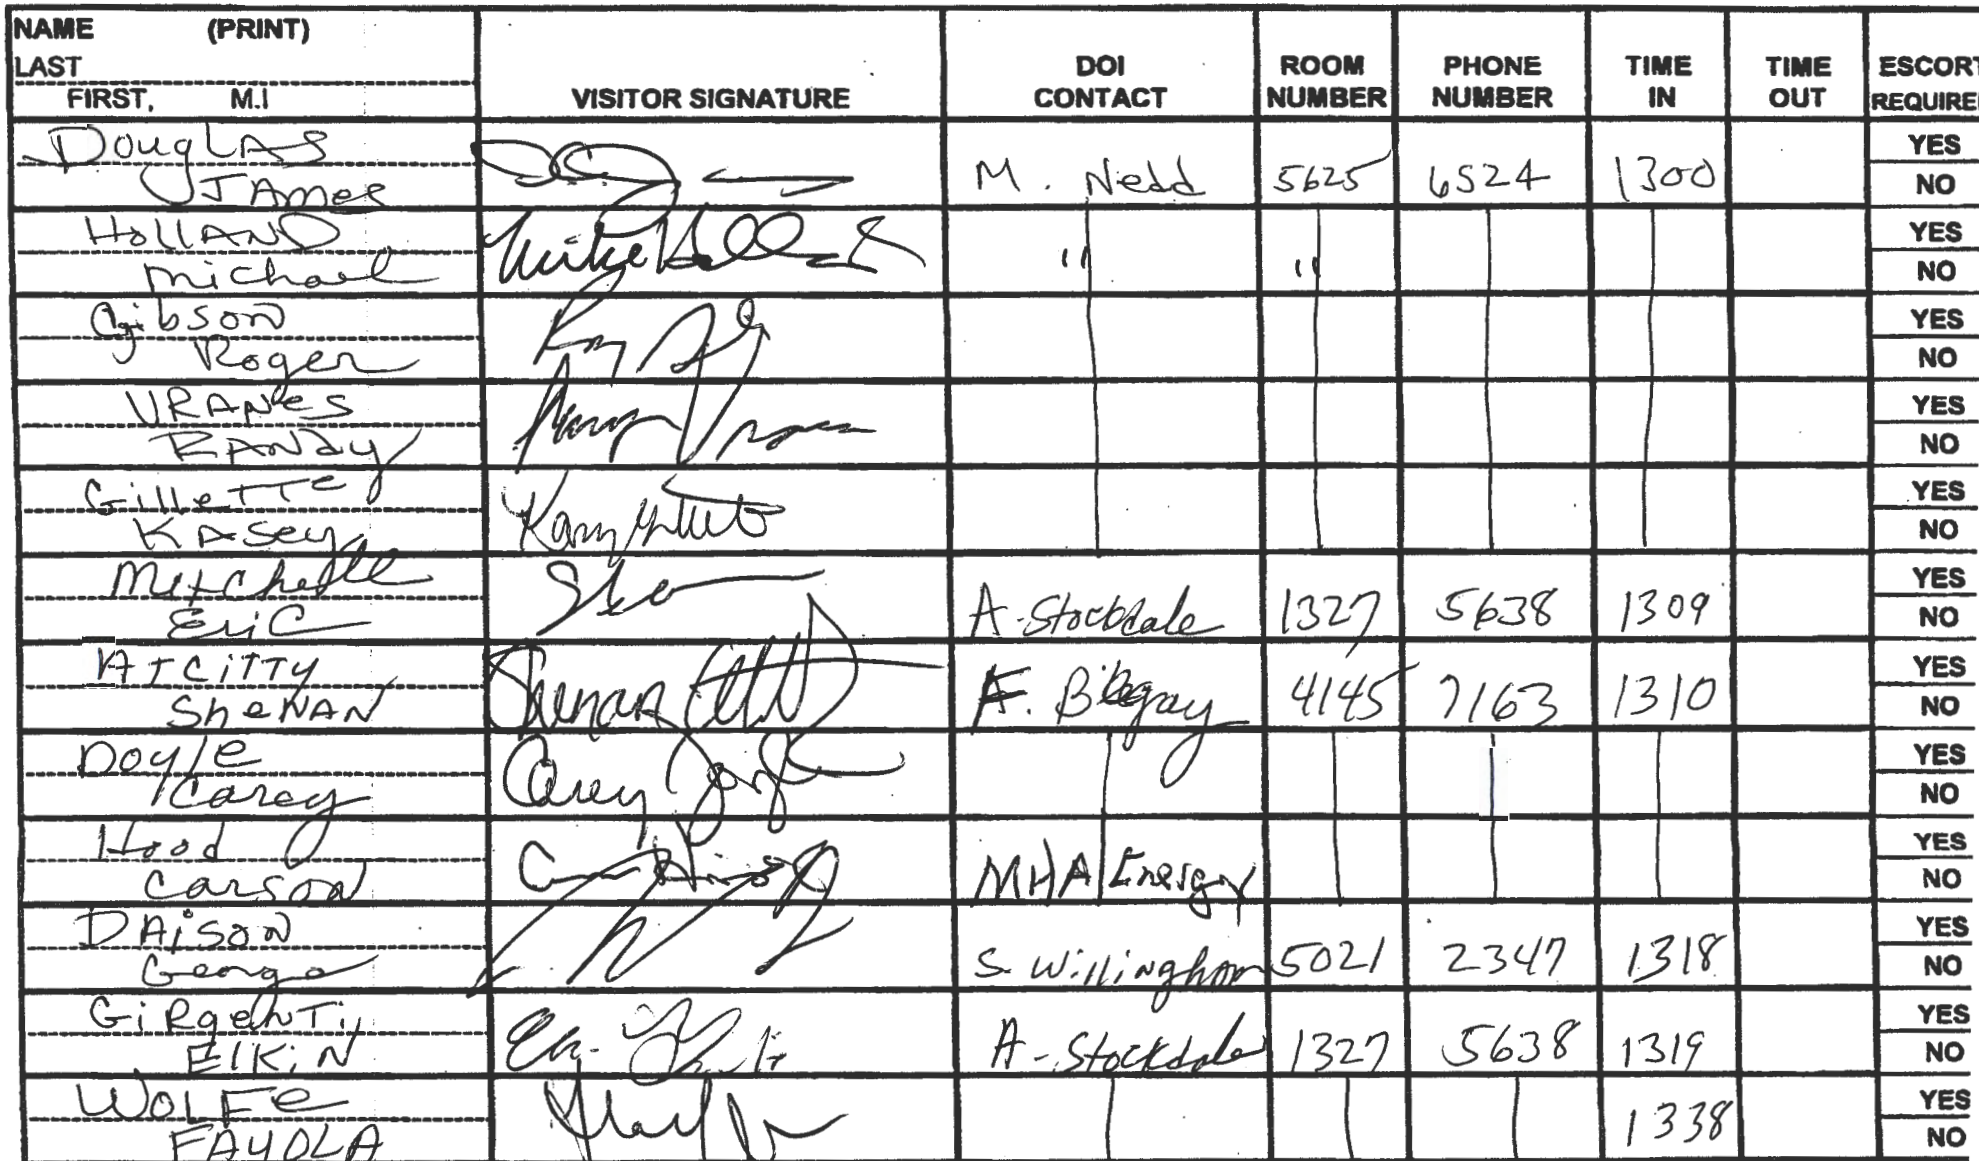 NAME (PRINT)
LAST
FIRST, M.I
VISITOR SIGNATURE
DOI CONTACT
ROOM NUMBER
PHONE NUMBER
TIME IN
TIME OUT
ESCORT REQUIRED
DougLAS
JAmes
M. Nedd 5625 6524 1300
YES
NO
HOLLAND
michael
Mike Holland
" "
YES
NO
Gibson
Roger
YES
NO
URANes
RANdy
YES
NO
GilleTTe
KAsey
YES
NO
Mitchell
Eric
A-Stockdale 1327 5638 1309
YES
NO
ATCiTTy
SheNAN
Shenan
F. Begay 4145 7163 1310
YES
NO
Doyle
Carey
Carey Doyle
YES
NO
Hood
Carson
MHA Energy
YES
NO
DAiSON
George
S. Willingham 5021 2347 1318
YES
NO
GiRgenTi
ElKiN
A-Stockdale 1327 5638 1319
YES
NO
WOLFe
FAYOLA
1338
YES
NO